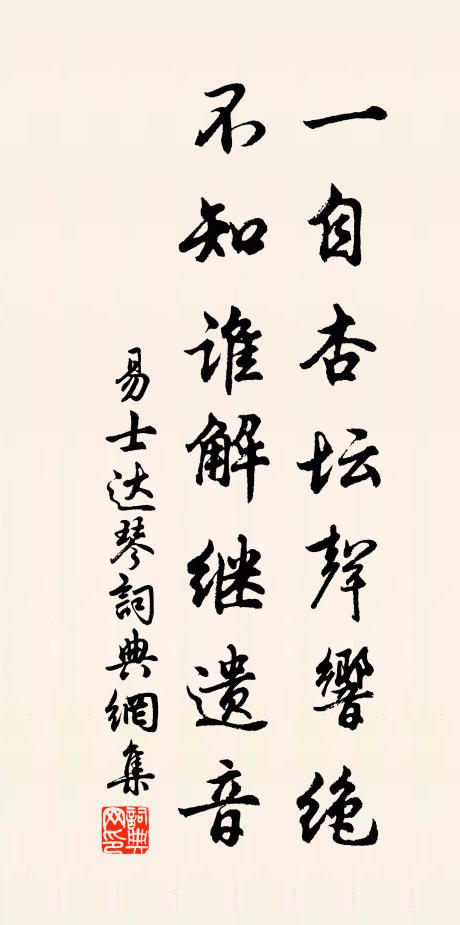 一自杏坛聲響绝
不知谁解继遗音
易士达琴詞典網集
詞典网印